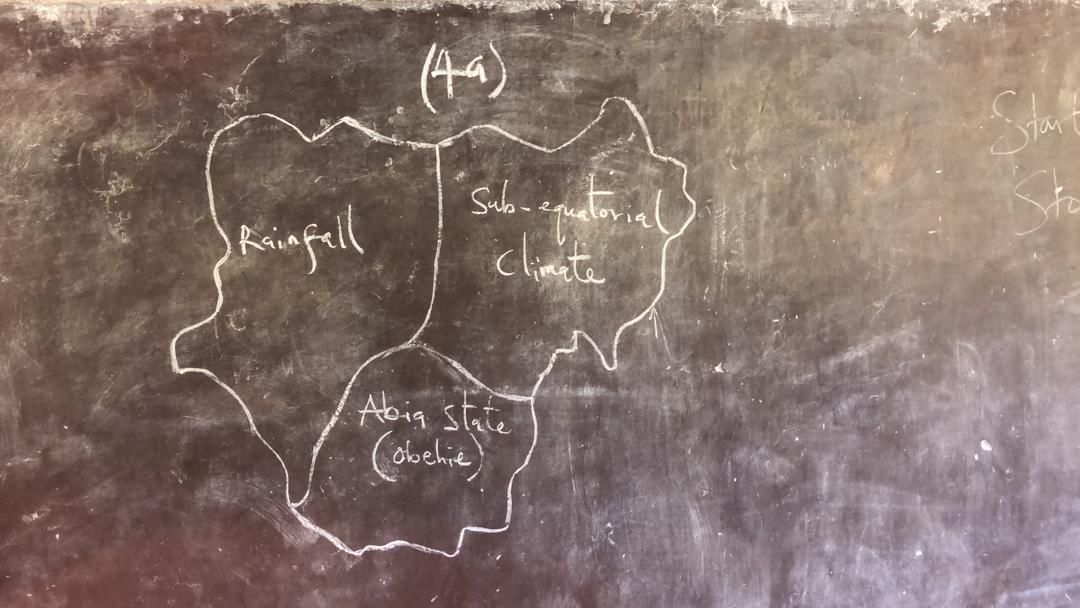 (4a)
Rainfall
Sub-equatorial
Climate
Abia State
(obehie)
Start